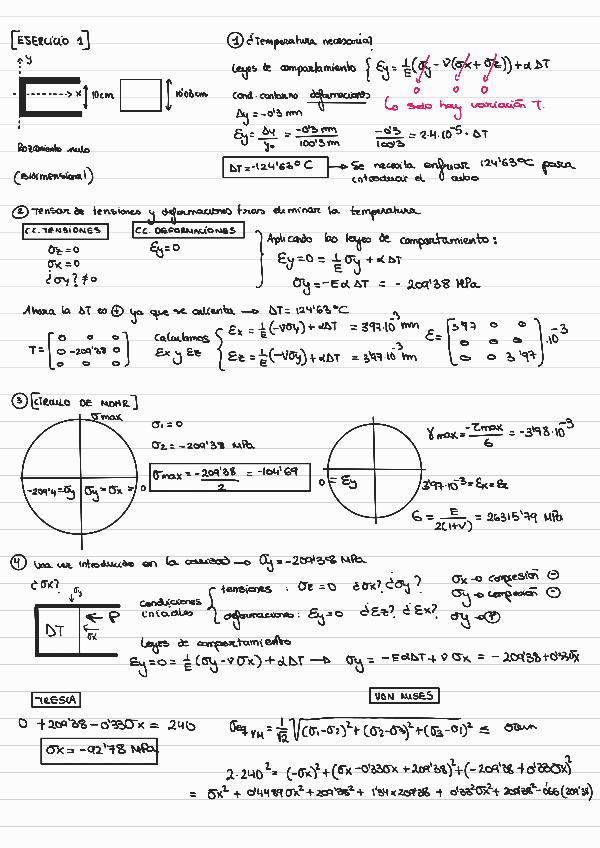 [EJERCICIO 1]
y
x
10cm
10'03cm
Rozamiento nulo
(Bidimensional)
① ¿Temperatura necesaria?
Leyes de comportamiento { Ey = 1/E (σy - ν(σx + σz)) + α ΔT
0 0 0
Lo solo hay variación T.
Cond. contorno deformaciones
Δy = -0'3 mm
Ey = Δy/y₀ = -0'3 mm/100'3 mm
-0'3/100'3 = 2.4·10⁻⁵ · ΔT
ΔT = -124'63°C → Se necesita enfriar 124'63°C para
introducir el cubo
② Tensor de tensiones y deformaciones tras eliminar la temperatura
CC. TENSIONES
σz = 0
σx = 0
¿σy? ≠ 0
CC. DEFORMACIONES
Ey = 0
Aplicando las leyes de comportamiento:
Ey = 0 = 1/E σy + α ΔT
σy = -E α ΔT = -209'38 MPa
Ahora la ΔT es ⊕ ya que se calienta → ΔT = 124'63°C
T = [0 0 0
0 -209'38 0
0 0 0]
Calculamos
Ex y Ez
Ex = 1/E (-νσy) + αΔT = 3'97·10⁻³ mm
Ez = 1/E (-νσy) + αΔT = 3'97·10⁻³ mm
E = [3'97 0 0
0 0 0
0 0 3'97] ·10⁻³
③ [CÍRCULO DE MOHR]
σmax
-209'4 = σy
σy = σx = 0
σ₁ = 0
σ₂ = -209'38 MPa
σmax = -209'38/2 = -104'69
0 = Ey
3'97·10⁻³ = Ex = Ez
γmax = -τmax/G = -3'98·10⁻³
G = E/2(1+ν) = 26315'79 MPa
④ Una vez introducido en la cavidad → σy = -209'38 MPa
¿σx?
σy
ΔT
P
σx
condiciones
iniciales
tensiones : σz = 0 ¿σx? ¿σy?
deformaciones: Ey = 0 ¿Ez? ¿Ex?
σx → compresión ⊖
σy → compresión ⊖
Leyes de comportamiento
Ey = 0 = 1/E (σy - ν σx) + α ΔT → σy = -EαΔT + ν σx = -209'38 + 0'33σx
TRESCA
0 + 209'38 - 0'33σx = 240
σx = -92'78 MPa
VON MISES
σeq VM = 1/√2 √((σ₁-σ₂)² + (σ₂-σ₃)² + (σ₃-σ₁)²) ≤
2·240² = (-σx)² + (σx - 0'33σx + 209'38)² + (-209'38 + 0'33σx)²
= σx² + 0'4489σx² + 209'38² + 1'34×209'38 + 0'33²σx² + 209'38² - 0'66(209'38)